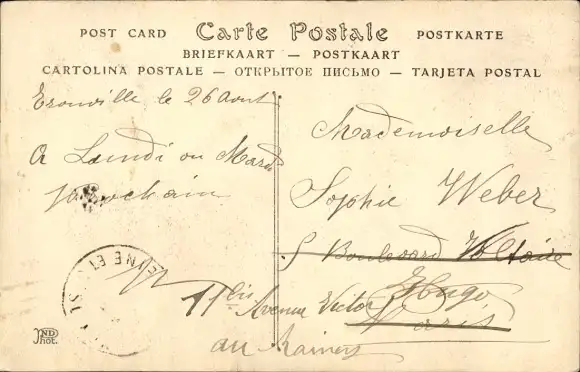 POST CARD Carte Postale POSTKARTE
BRIEFKAART — POSTKAART
CARTOLINA POSTALE — ОТКРЫТОЕ ПИСЬМО — TARJETA POSTAL
le 26 Août
A Lundi ou Mardi
prochain
Mademoiselle
Sophie Weber
5 Boulevard Voltaire
11 bis Avenue Victor Hugo
Paris
au Raincy
SEINE ET
ND
Phot.